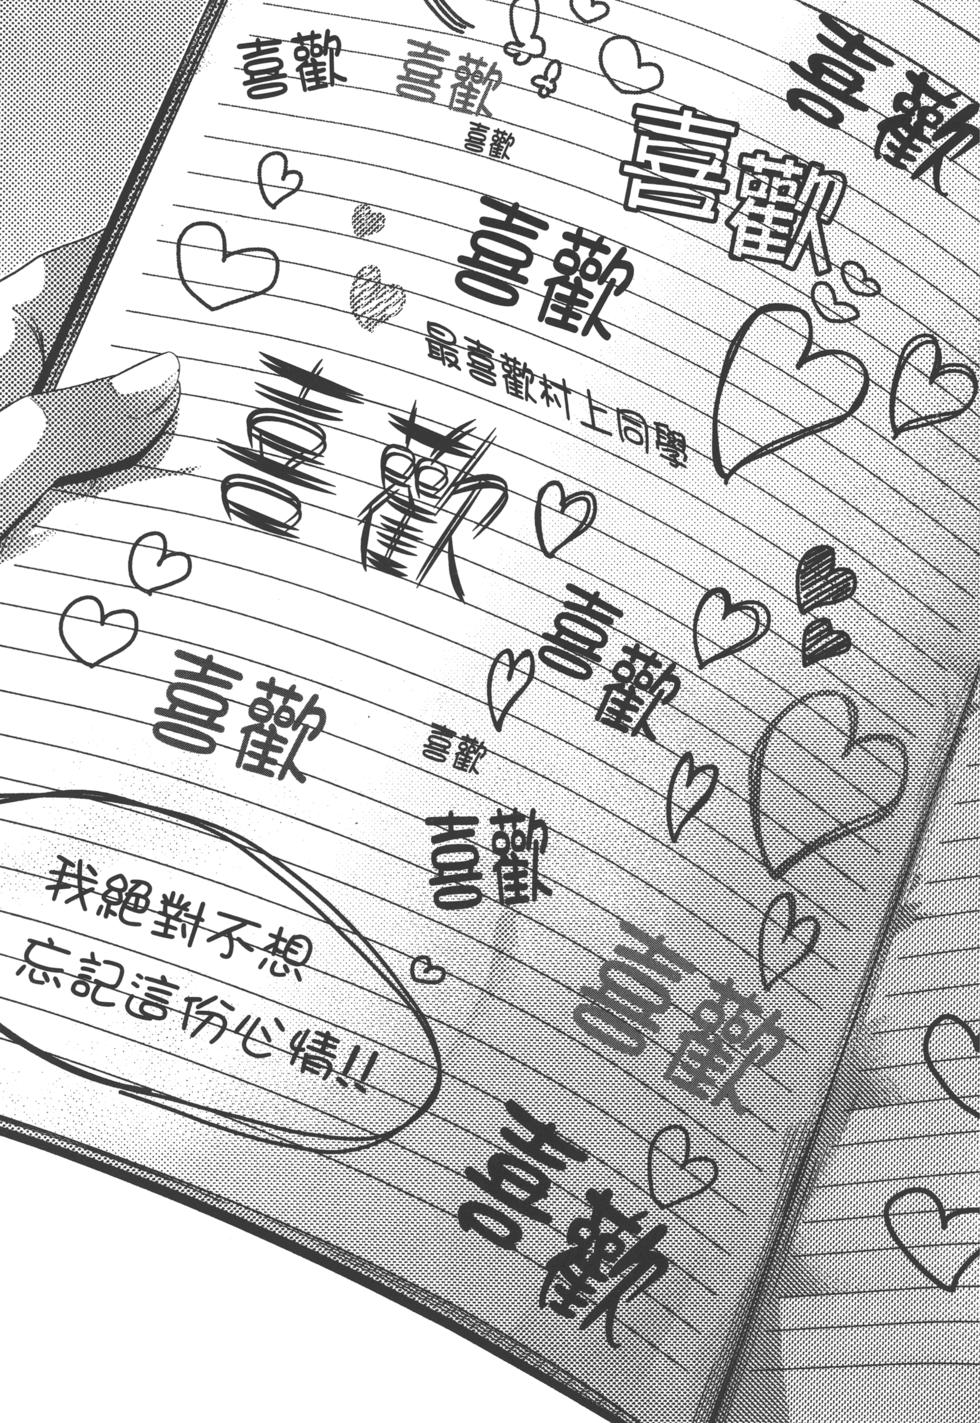 喜歡
喜歡
喜歡
喜歡
喜歡
喜歡
最喜歡村上同學
喜歡
喜歡
喜歡
喜歡
喜歡
我絕對不想
忘記這份心情!!
喜歡
喜歡